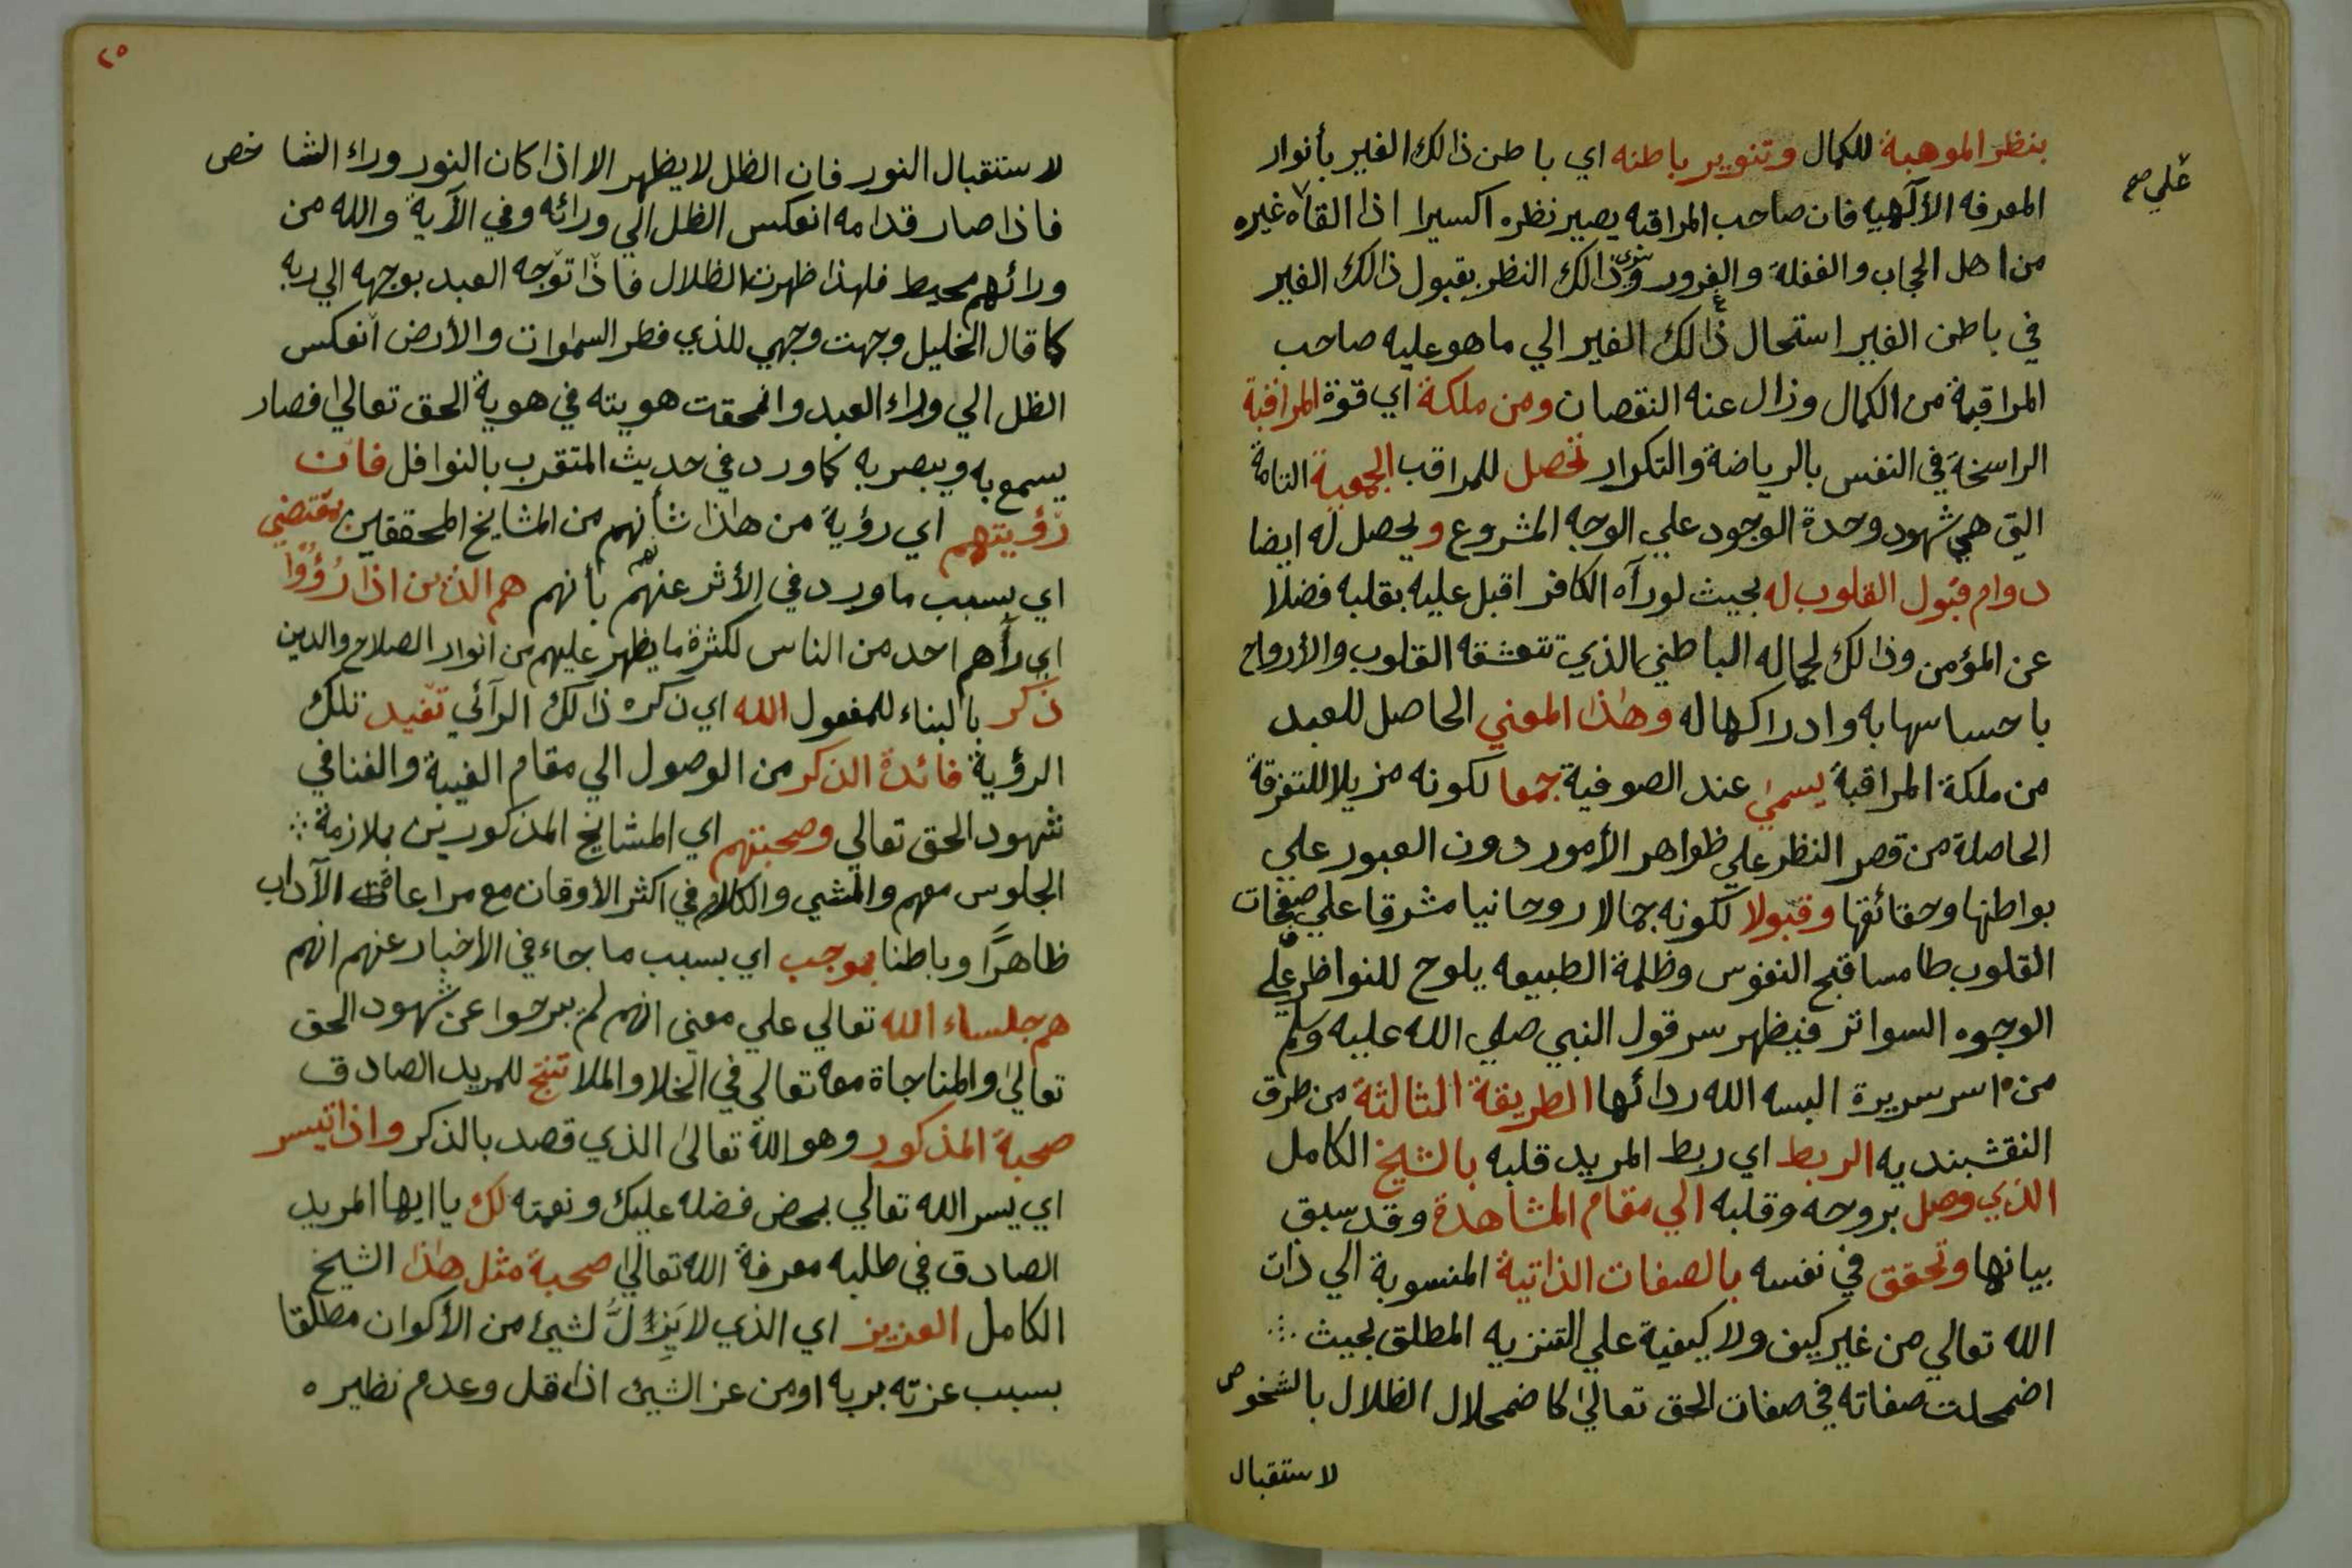 بنظر الموهبة للكمال وتنوير باطنه اي باطن ذالك الغير بأنوار
المعرفه الألهيه فان صاحب المراقبه يصير نظره اكسيرا اذا القاه غيره
علي صح
من اهل الحجاب والغفلة والغرور وذالك النظر بقبول ذالك الغير
في باطن الغير استحال ذالك الغير الي ما هو عليه صاحب
المراقبة من الكمال وزال عنه النقصان ومن ملكة اي قوة المراقبة
الراسخة في النفس بالرياضة والتكرار تحصل للمراقب الجمعية التامة
التي هي شهود وحدة الوجود علي الوجه المشروع ويحصل له ايضا
دوام قبول القلوب له بحيث لو رآه الكافر اقبل عليه بقلبه فضلا
عن المؤمن وذالك لجماله الباطني الذي تتعشقه القلوب والأرواح
باحساسها به وادراكها له وهذا المعني الحاصل للعبد
من ملكة المراقبة يسمي عند الصوفية جمعا لكونه مزيلا للتفرقة
الحاصلة من قصر النظر علي ظواهر الأمور دون العبور علي
بواطنها وحقائقها وقبولا لكونه جمالا روحانيا مشرقا علي صفحات
القلوب طامسا قبح النفوس وظلمة الطبيعه يلوح للنواظر علي
الوجوه السواتر فيظهر سر قول النبي صلي الله عليه وسلم
من اسر سريرة البسه الله ردائها الطريقة الثالثة من طرق
النقشبنديه الربط اي ربط المريد قلبه بالشيخ الكامل
الذي وصل بروحه وقلبه الي مقام المشاهدة وقد سبق
بيانها وتحقق في نفسه بالصفات الذاتية المنسوبة الي ذات
الله تعالي من غير كيف ولا كيفية علي التنزيه المطلق بحيث
اضمحلت صفاته في صفات الحق تعالي كاضمحلال الظلال بالشخوص
لاستقبال
٢٥
لاستقبال النور فان الظل لا يظهر الا اذا كان النور وراء الشاخص
فاذا صار قدامه انعكس الظل الي ورائه وفي الآية والله من
ورائهم محيط فلهذا ظهرت الظلال فاذا توجه العبد بوجهه الي ربه
كما قال الخليل وجهت وجهي للذي فطر السموات والأرض انعكس
الظل الي وراء العبد وانمحقت هويته في هوية الحق تعالي فصار
يسمع به ويبصر به كما ورد في حديث المتقرب بالنوافل فان
رؤيتهم اي رؤية من هذا شأنهم من المشايخ المحققين بمقتضي
اي بسبب ما ورد في الأثر عنهم بأنهم هم الذين اذا رُؤُوا
اي رآهم احد من الناس لكثرة ما يظهر عليهم من انوار الصلاح والدين
ذكر بالبناء للمفعول الله اي ذكره ذالك الرآئي تفيد تلك
الرؤية فائدة الذكر من الوصول الي مقام الغيبة والفنا في
شهود الحق تعالي وصحبتهم اي المشايخ المذكورين بملازمة
الجلوس معهم والمشي والكلام في اكثر الأوقات مع مراعات الآداب
ظاهرًا وباطنا بموجب اي بسبب ما جاء في الاخبار عنهم انهم
هم جلساء الله تعالي علي معني انهم لم يبرحوا عن شهود الحق
تعالي والمناجاة معه تعالي في الخلا والملا تنتج للمريد الصادق
صحبة المذكور وهو الله تعالي الذي قصد بالذكر واذا تيسر
اي يسر الله تعالي بمحض فضله عليك ونعمته لك يا ايها المريد
الصادق في طلبه معرفة الله تعالي صحبة مثل هذا الشيخ
الكامل العزيز اي الذي لا يَذِلُّ لشيئ من الأكوان مطلقا
بسبب عزته بربه او من عز الشيئ اذا قل وعدم نظيره